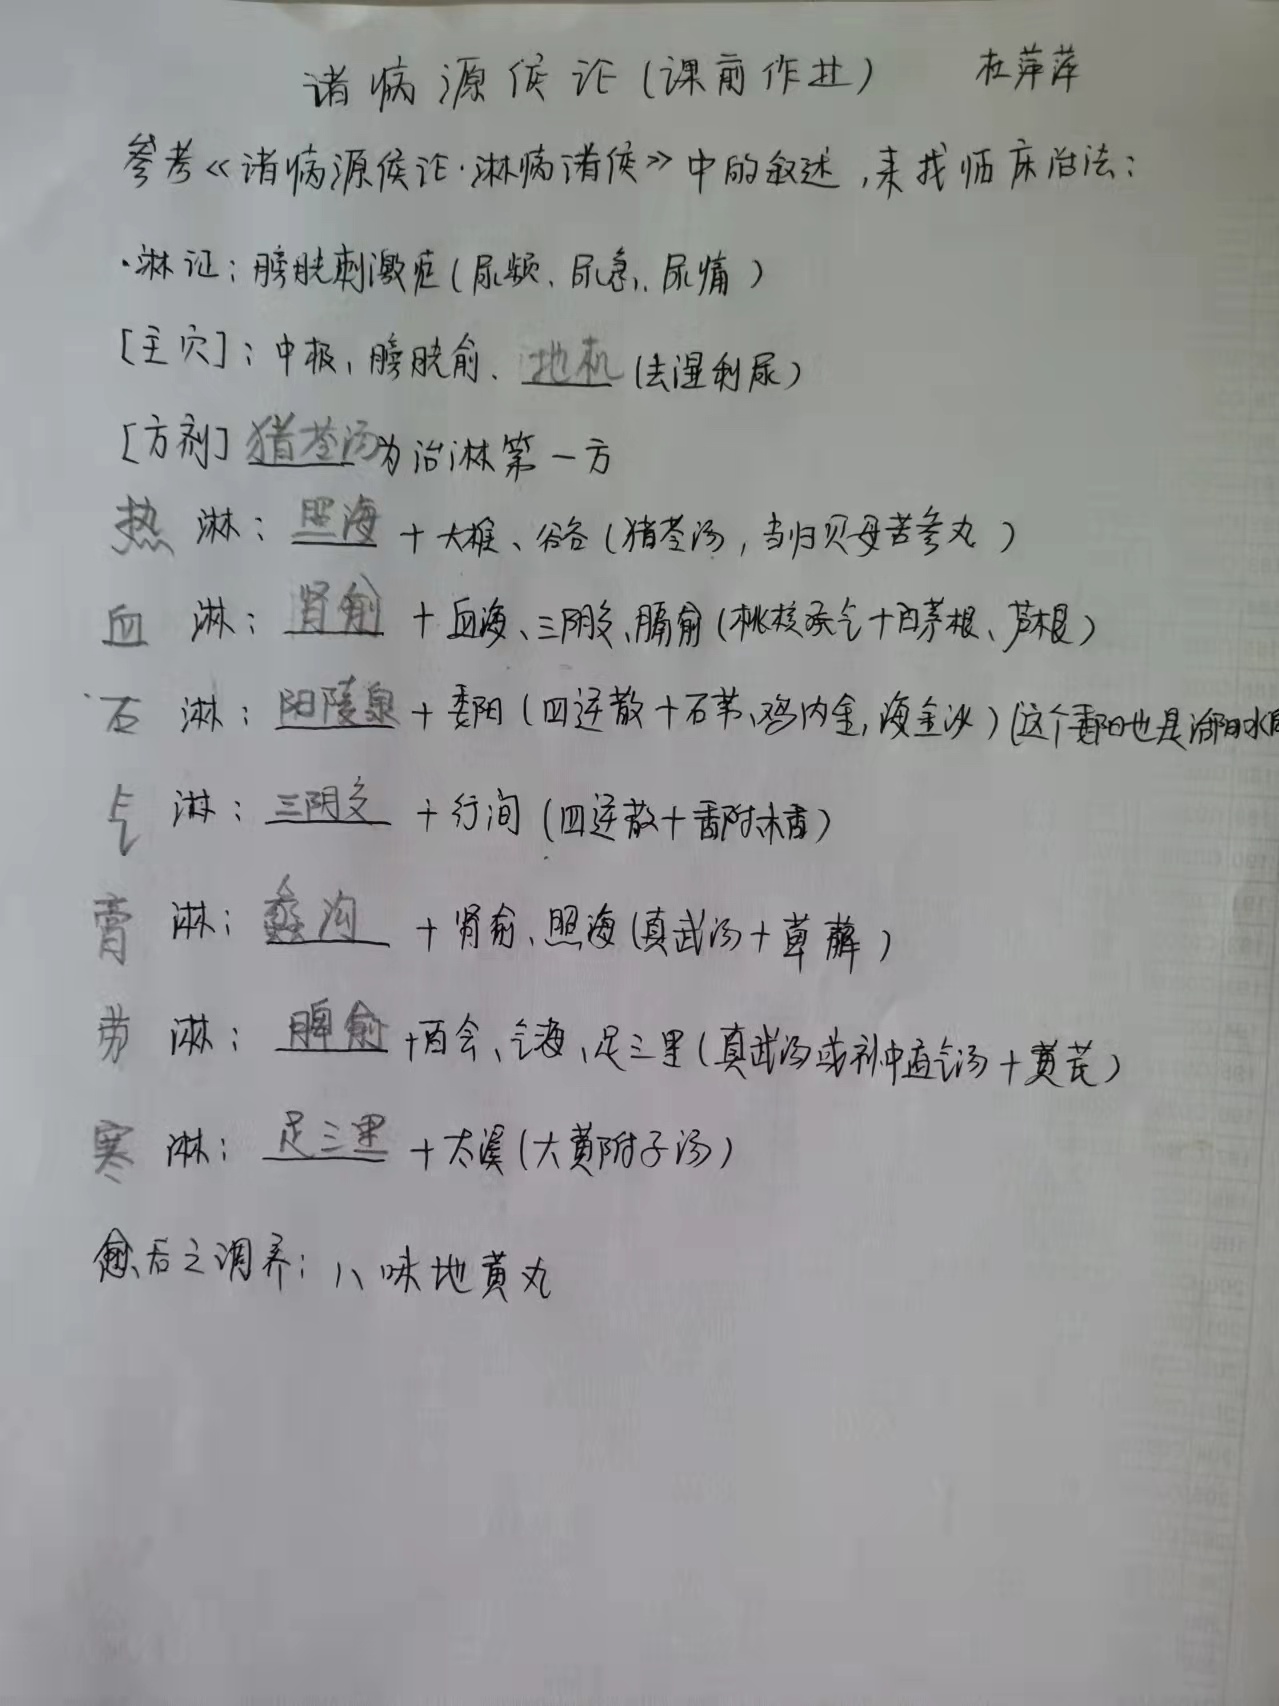 诸病源候论(课前作业) 杜萍萍
参考《诸病源候论·淋病诸候》中的叙述,来找临床治法:
·淋证:膀胱刺激症(尿频、尿急、尿痛)
[主穴]:中极、膀胱俞、地机(去湿利尿)
[方剂]猪苓汤为治淋第一方
热淋:照海+大椎、合谷(猪苓汤,当归贝母苦参丸)
血淋:肾俞+血海、三阴交、膈俞(桃核承气+白茅根、芦根)
石淋:阳陵泉+委阳(四逆散+石苇、鸡内金,海金沙)(这个委阳也是治阳水
气淋:三阴交+行间(四逆散+香附木香)
膏淋:蠡沟+肾俞、照海(真武汤+萆薢)
劳淋:脾俞+百会、气海、足三里(真武汤或补中益气汤+黄芪)
寒淋:足三里+太溪(大黄附子汤)
愈后之调养:八味地黄丸